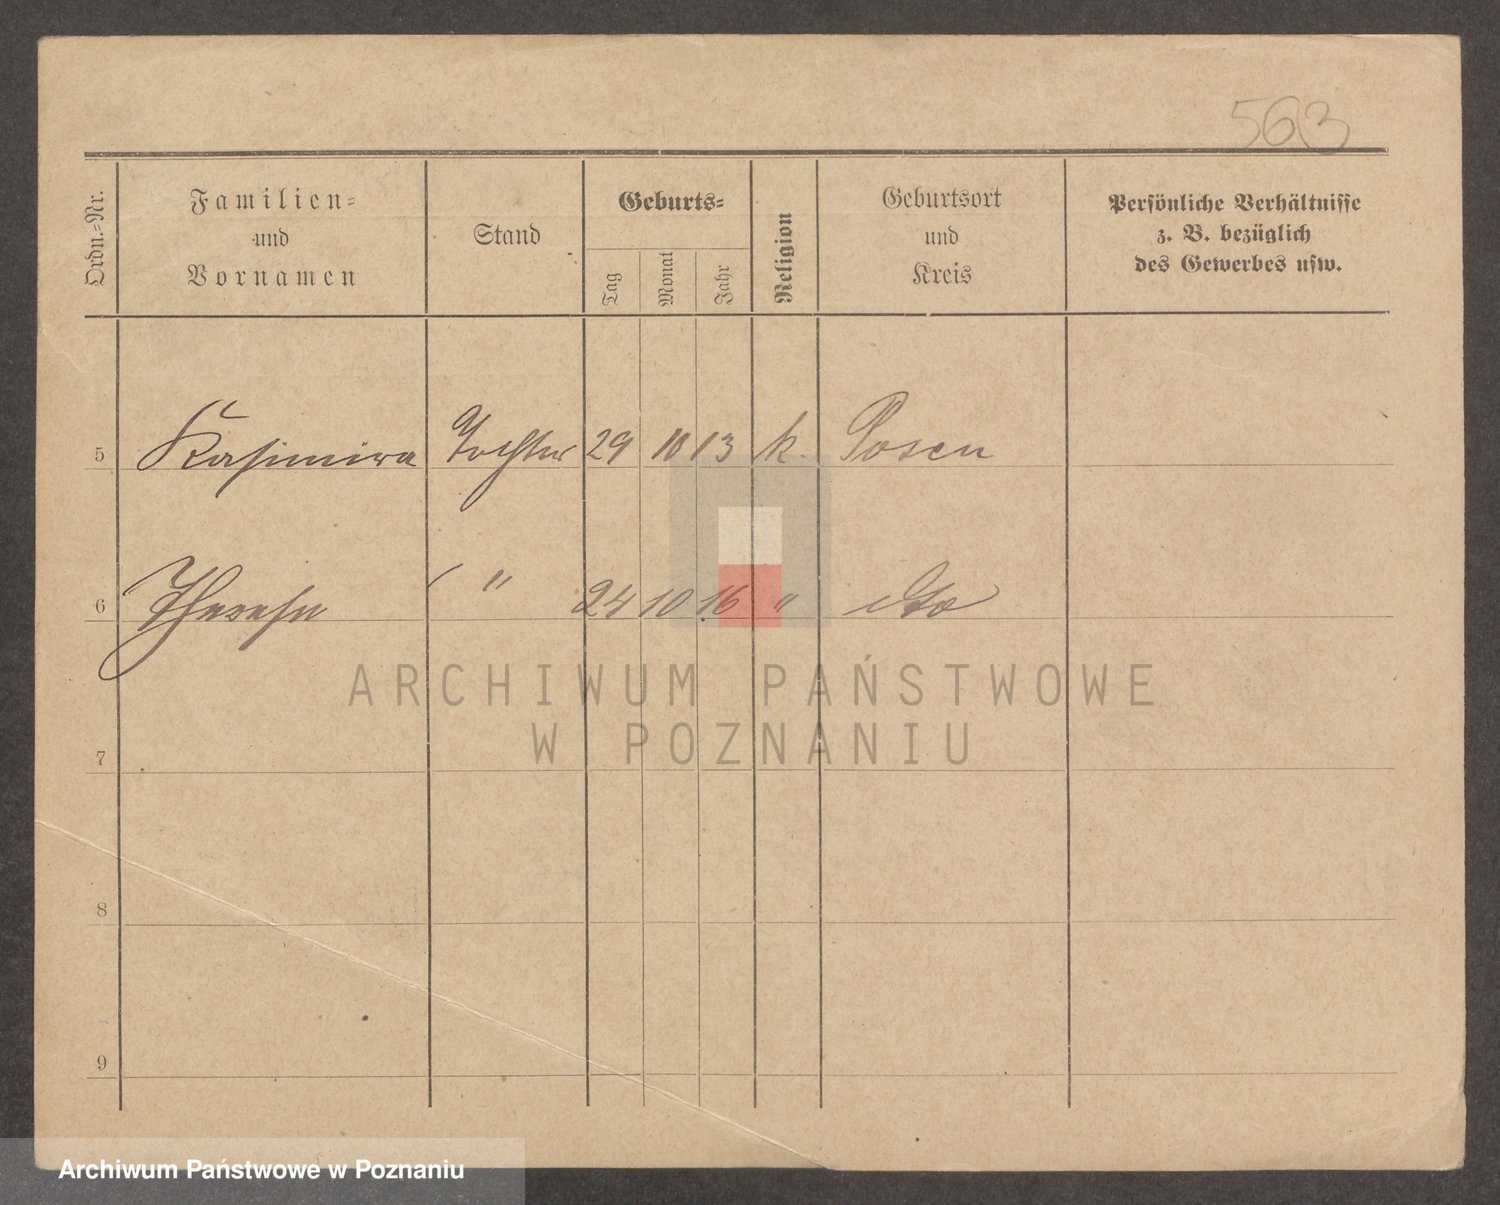 563
Ordn.-Nr.
Familien-
und
Vornamen
Stand
Geburts-
Tag
Monat
Jahr
Religion
Geburtsort
und
Kreis
Persönliche Verhältnisse
z. B. bezüglich
des Gewerbes usw.
5 Kasimira Tochter 29 10 13 k. Posen
6 Therese " 24 10 16 " dto
ARCHIWUM PAŃSTWOWE
W POZNANIU
7
8
9
Archiwum Państwowe w Poznaniu